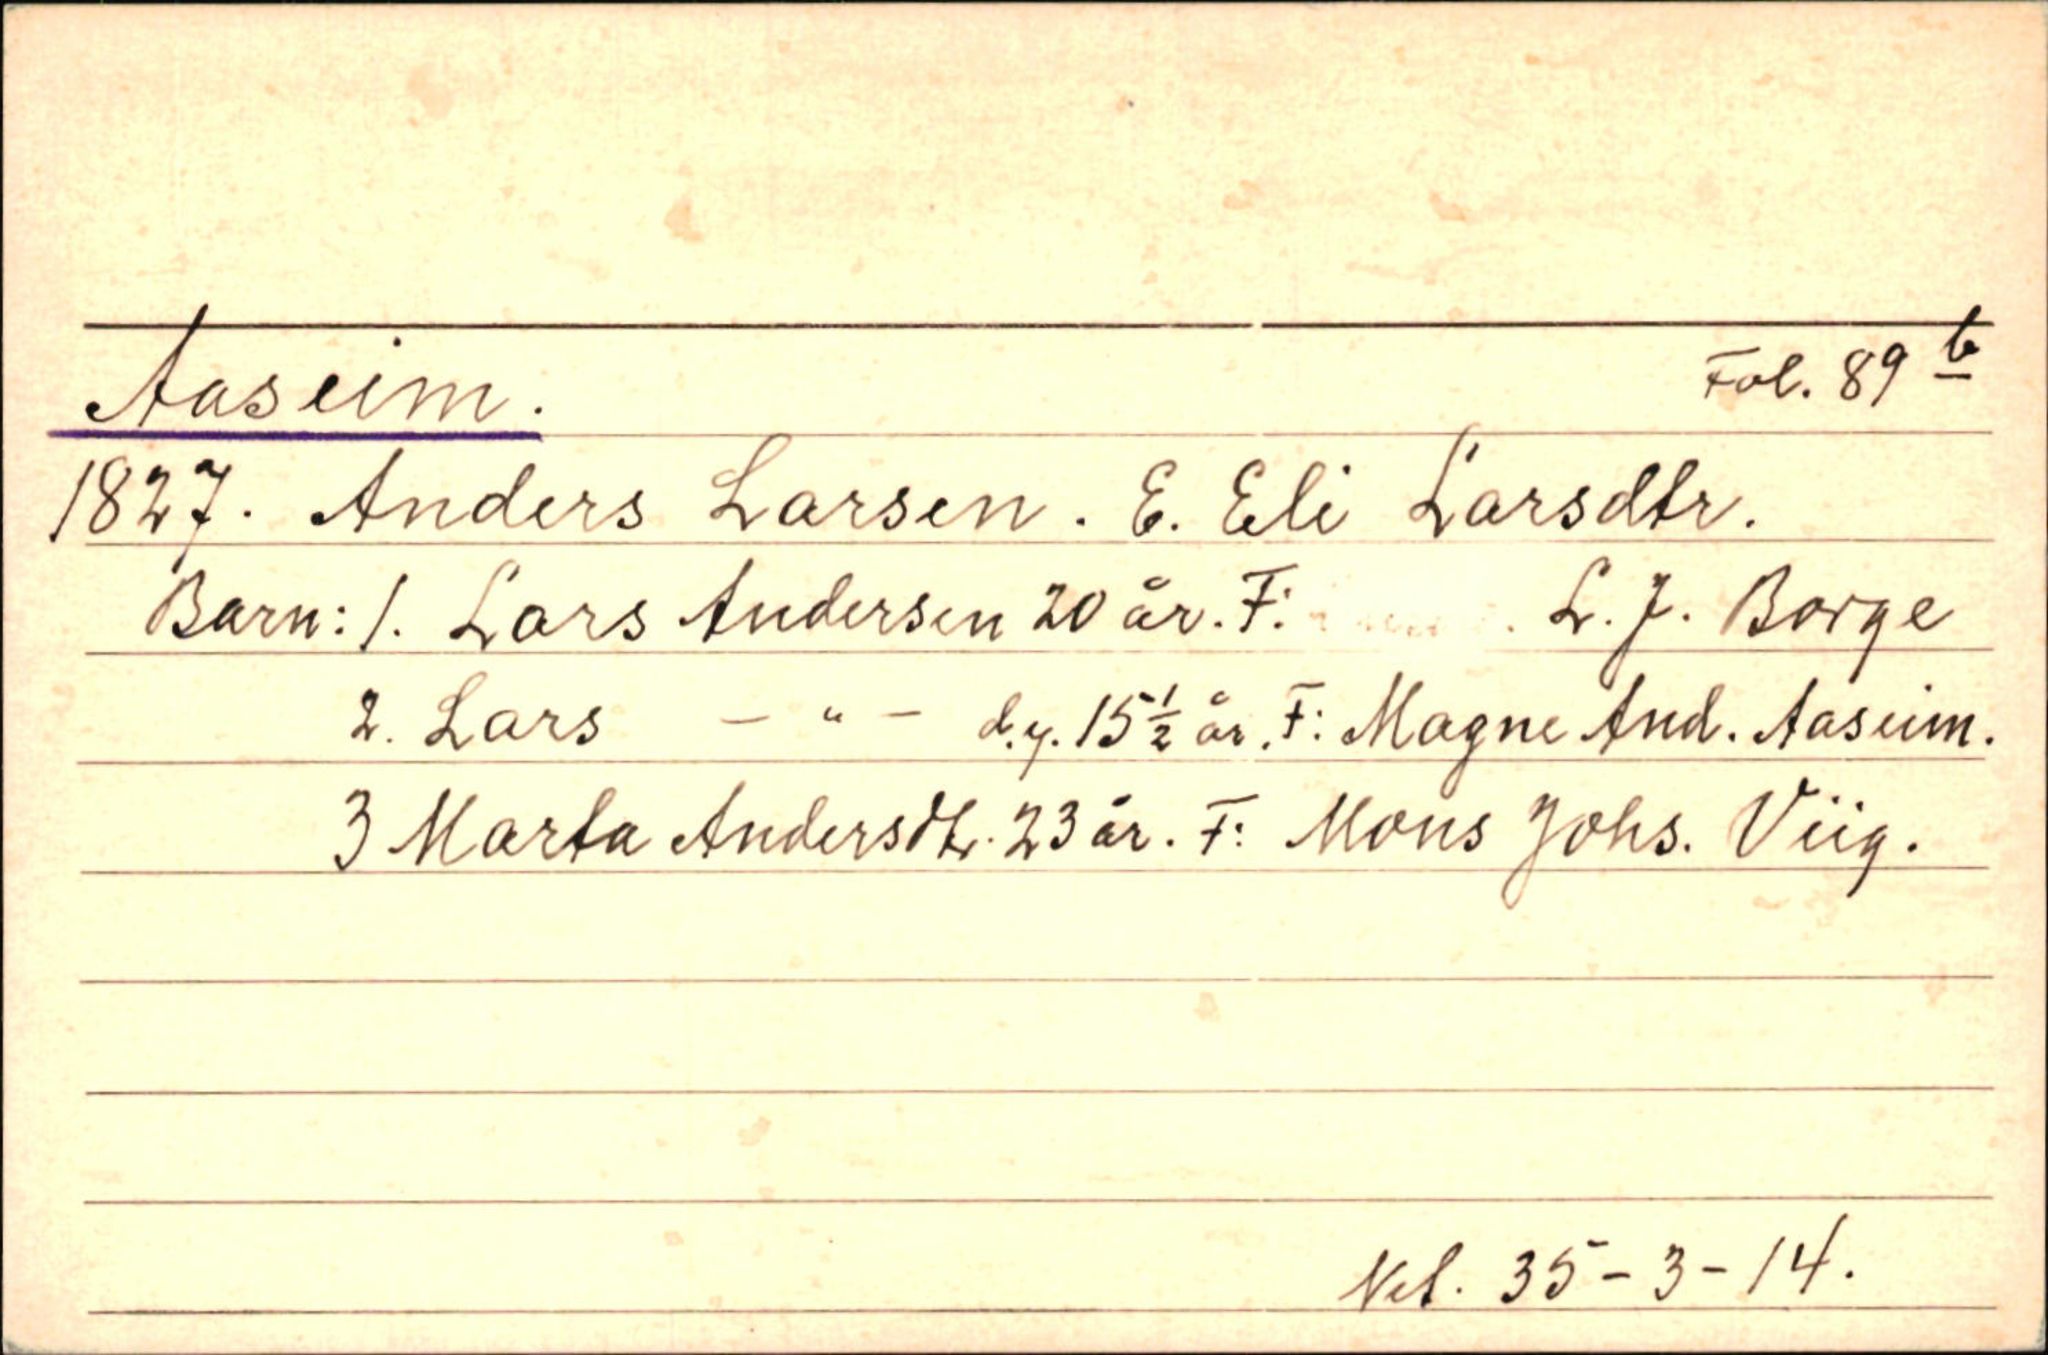 Aaseim. Fol. 89 b
1827. Anders Larsen. E. Eli Larsdtr.
Barn: 1. Lars Andersen 20 år. F: L. J. Borge
2. Lars – " – d.y. 15 1/2 år. F: Magne And. Aaseim.
3 Marta Andersdtr. 23 år. F: Mons Johs. Viig.
Net. 35 - 3 - 14.